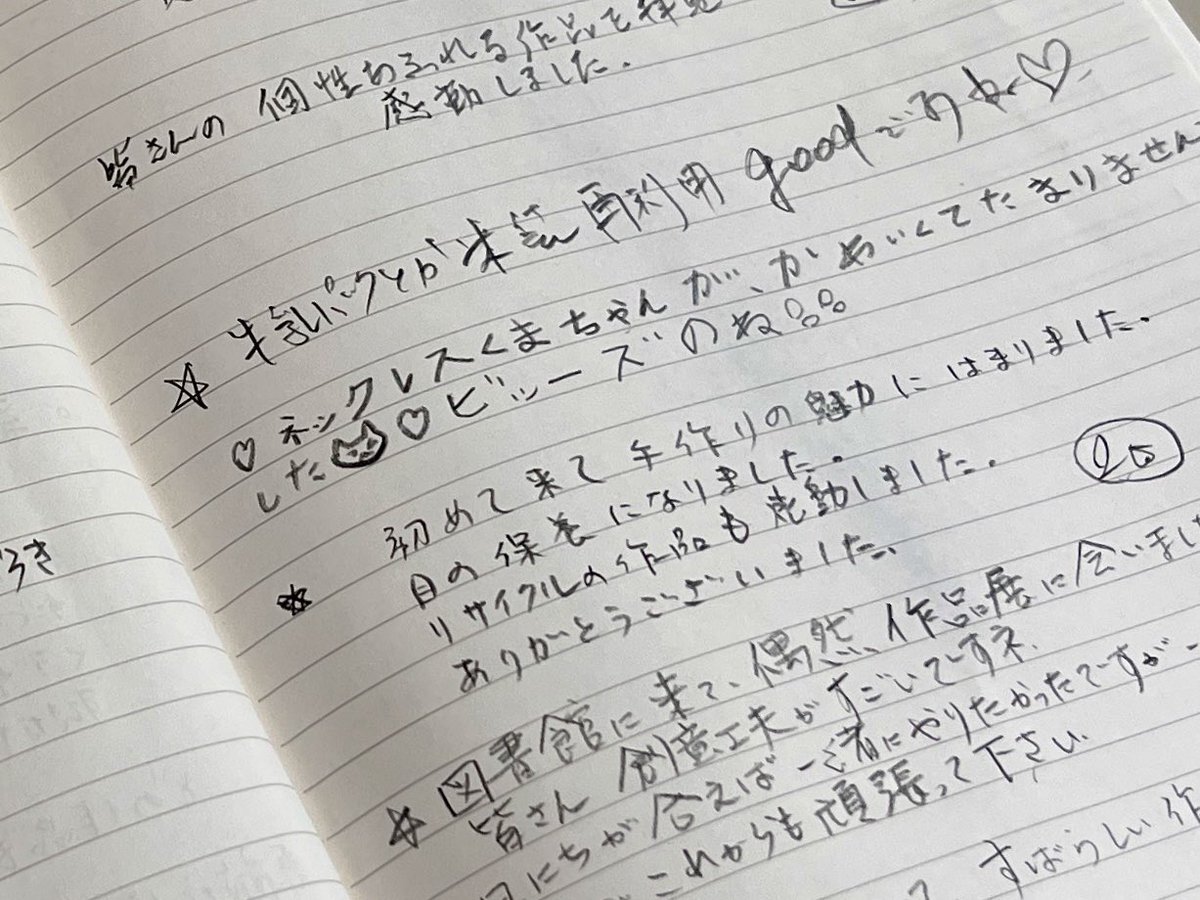 皆さんの個性あふれる作品を拝見
感動しました.
☆ 牛乳パックとか 再利用 goodですね♡
♡ ネックレスくまちゃんが、かわいくてたまりません
した ♡ビーズのね
初めて来て手作りの魅力にはまりました.
☆ 目の保養になりました.
リサイクルの作品も感動しました.
ありがとうございました.
☆ 図書館に来て、偶然、作品展に会いまし
皆さん 創意工夫がすごいですネ.
にちが合えば一緒にやりたかったですが
これからも頑張って下さい
すばらしい作
うき